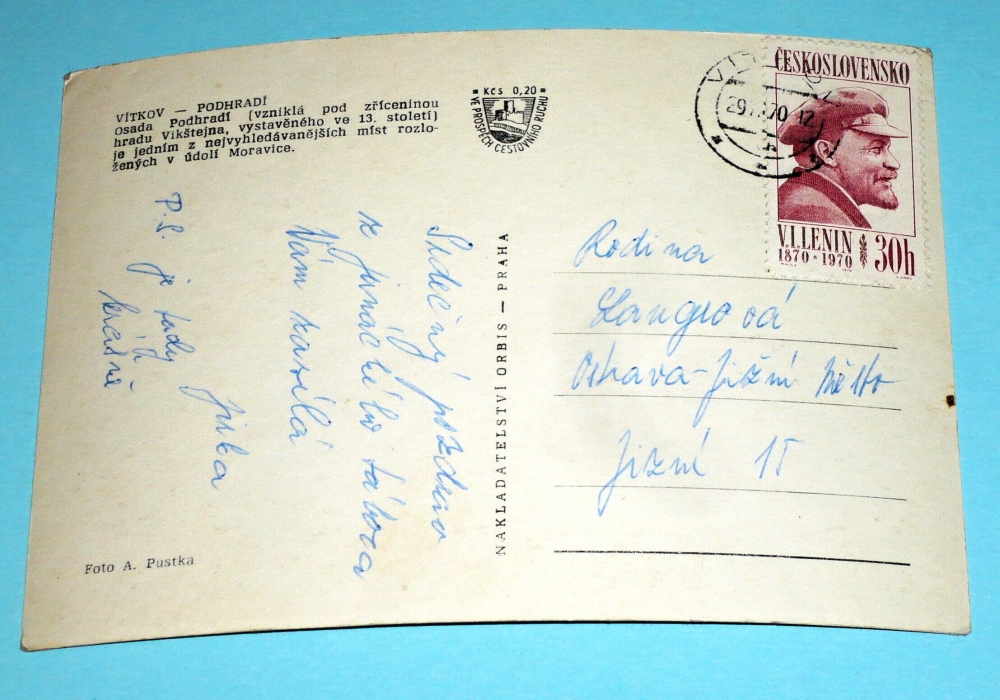 VÍTKOV — PODHRADÍ
Osada Podhradí (vzniklá pod zříceninou
hradu Vikštejna, vystavěného ve 13. století)
je jedním z nejvyhledávanějších míst rozlo-
žených v údolí Moravice.
Kčs 0,20
VE PROSPĚCH CESTOVNÍHO RUCHU
ČESKOSLOVENSKO
V.I.LENIN
1870-1970
30h
Srdečný pozdrav
z jinačího tábora
Vám zasílá
Jirka
P.S. je tady
krásně
NAKLADATELSTVÍ ORBIS — PRAHA
Rodina
Langrová
Ostrava-Jižní Město
Jižní 15
Foto A. Pustka